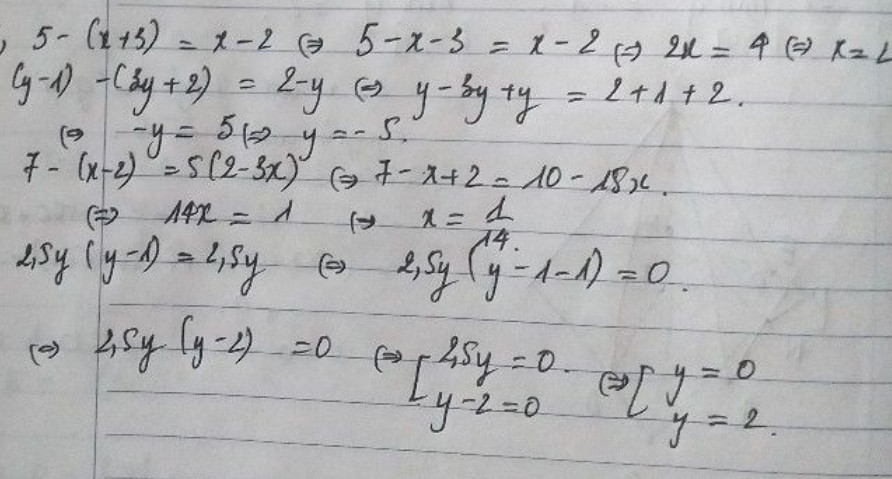 , 5 - (x+3) = x - 2 ⇔ 5 - x - 3 = x - 2 ⇔ 2x = 4 ⇔ x = 2
(y-1) - (3y+2) = 2-y ⇔ y - 3y + y = 2 + 1 + 2.
⇔ -y = 5 ⇔ y = -5.
7 - (x-2) = 5(2-3x) ⇔ 7 - x + 2 = 10 - 15x.
⇔ 14x = 1 ⇔ x = 1/14.
2,5y (y-1) = 2,5y ⇔ 2,5y (y - 1 - 1) = 0.
⇔ 2,5y (y-2) = 0 ⇔ [ 2,5y = 0. ⇔ [ y = 0
y - 2 = 0 y = 2.